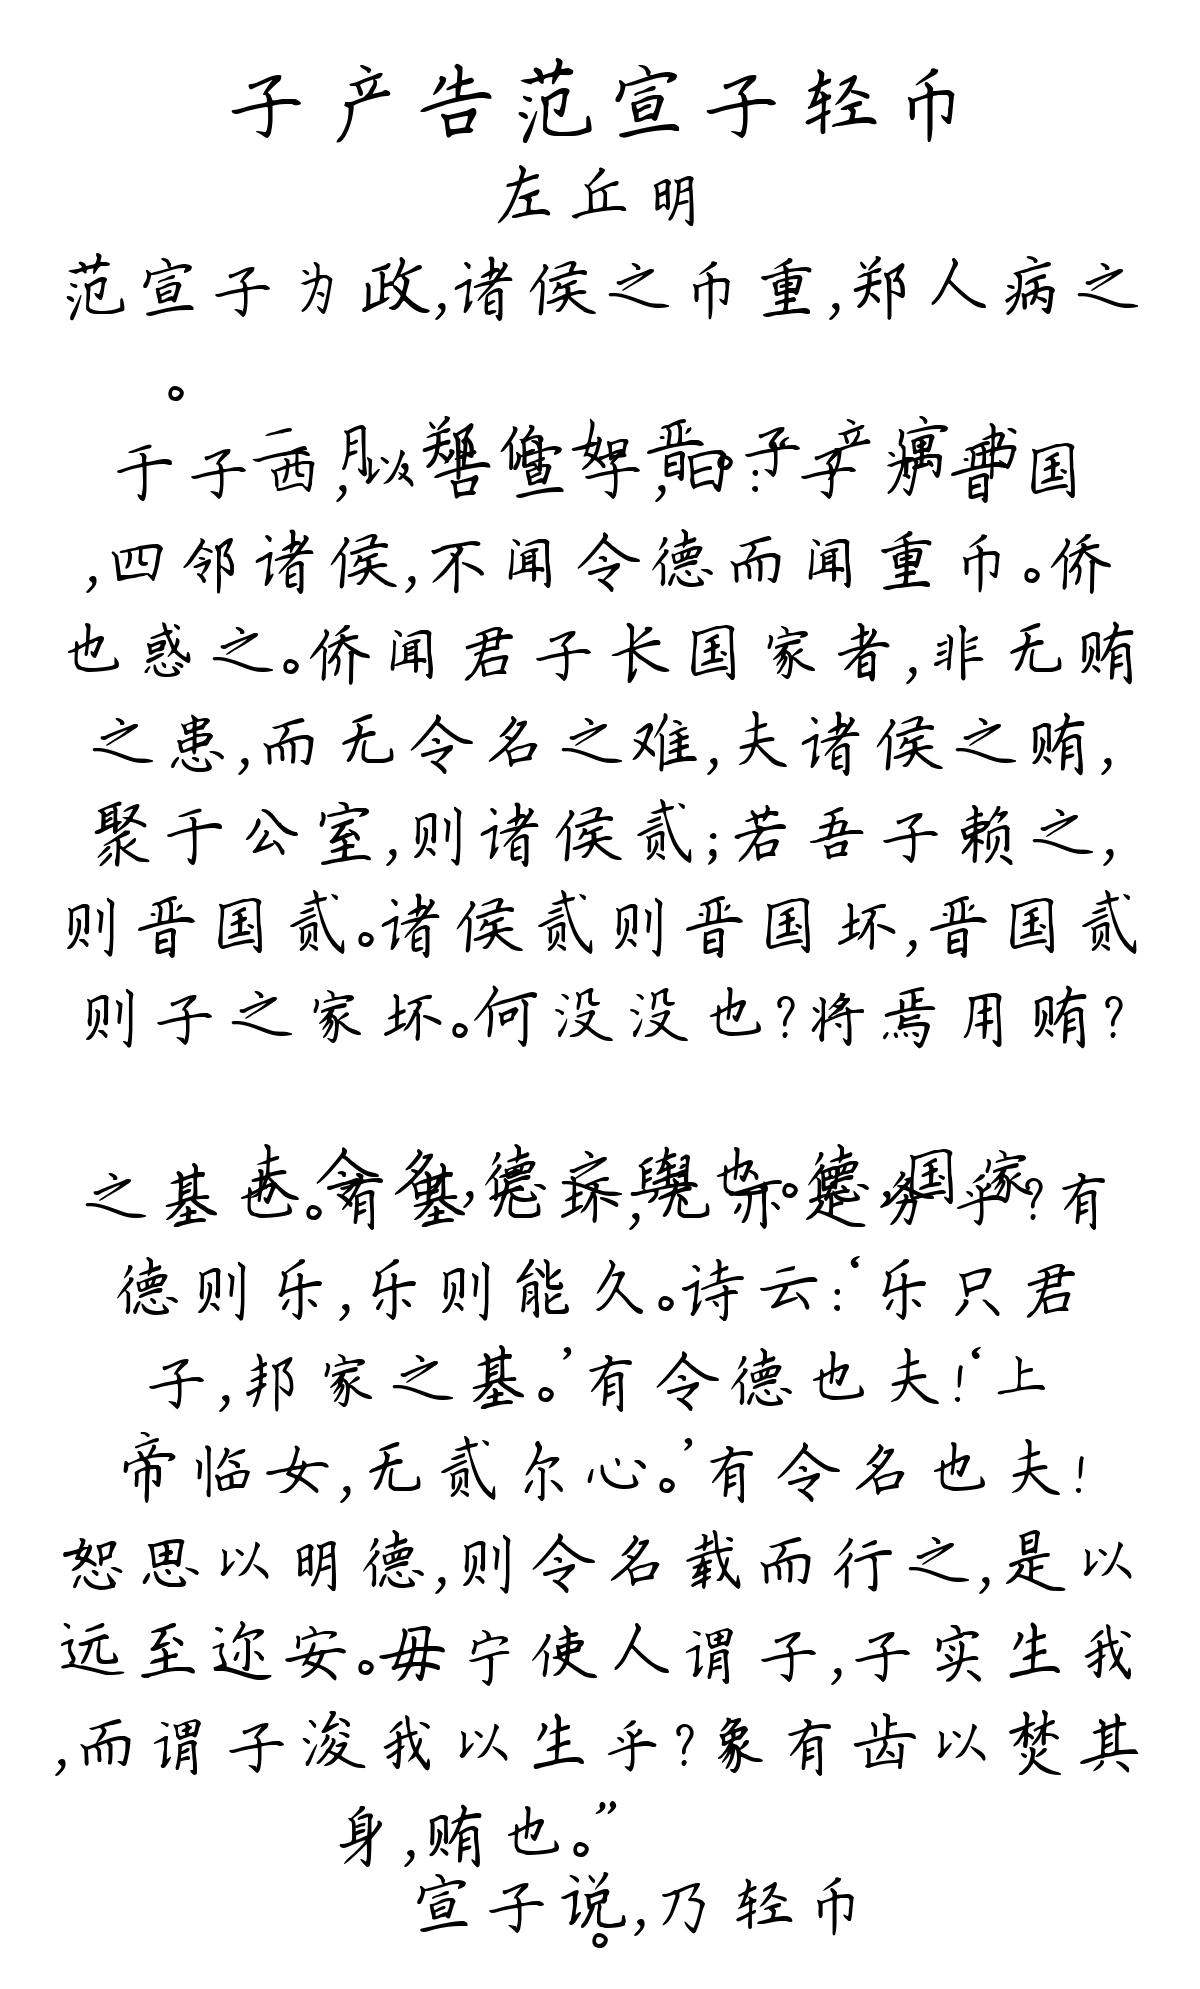 子产告范宣子轻币
左丘明
范宣子为政,诸侯之币重,郑人病之
。
二月,郑伯如晋。子产寓书
于子西,以告宣子,曰:“子为晋国
,四邻诸侯,不闻令德而闻重币。侨
也惑之。侨闻君子长国家者,非无贿
之患,而无令名之难,夫诸侯之贿,
聚于公室,则诸侯贰;若吾子赖之,
则晋国贰。诸侯贰则晋国坏,晋国贰
则子之家坏。何没没也?将焉用贿?
夫令名,德之舆也。德,国家
之基也。有基无坏,无亦是务乎?有
德则乐,乐则能久。诗云:‘乐只君
子,邦家之基。’有令德也夫!‘上
帝临女,无贰尔心。’有令名也夫!
恕思以明德,则令名载而行之,是以
远至迩安。毋宁使人谓子,子实生我
,而谓子浚我以生乎?象有齿以焚其
身,贿也。”
宣子说,乃轻币
。